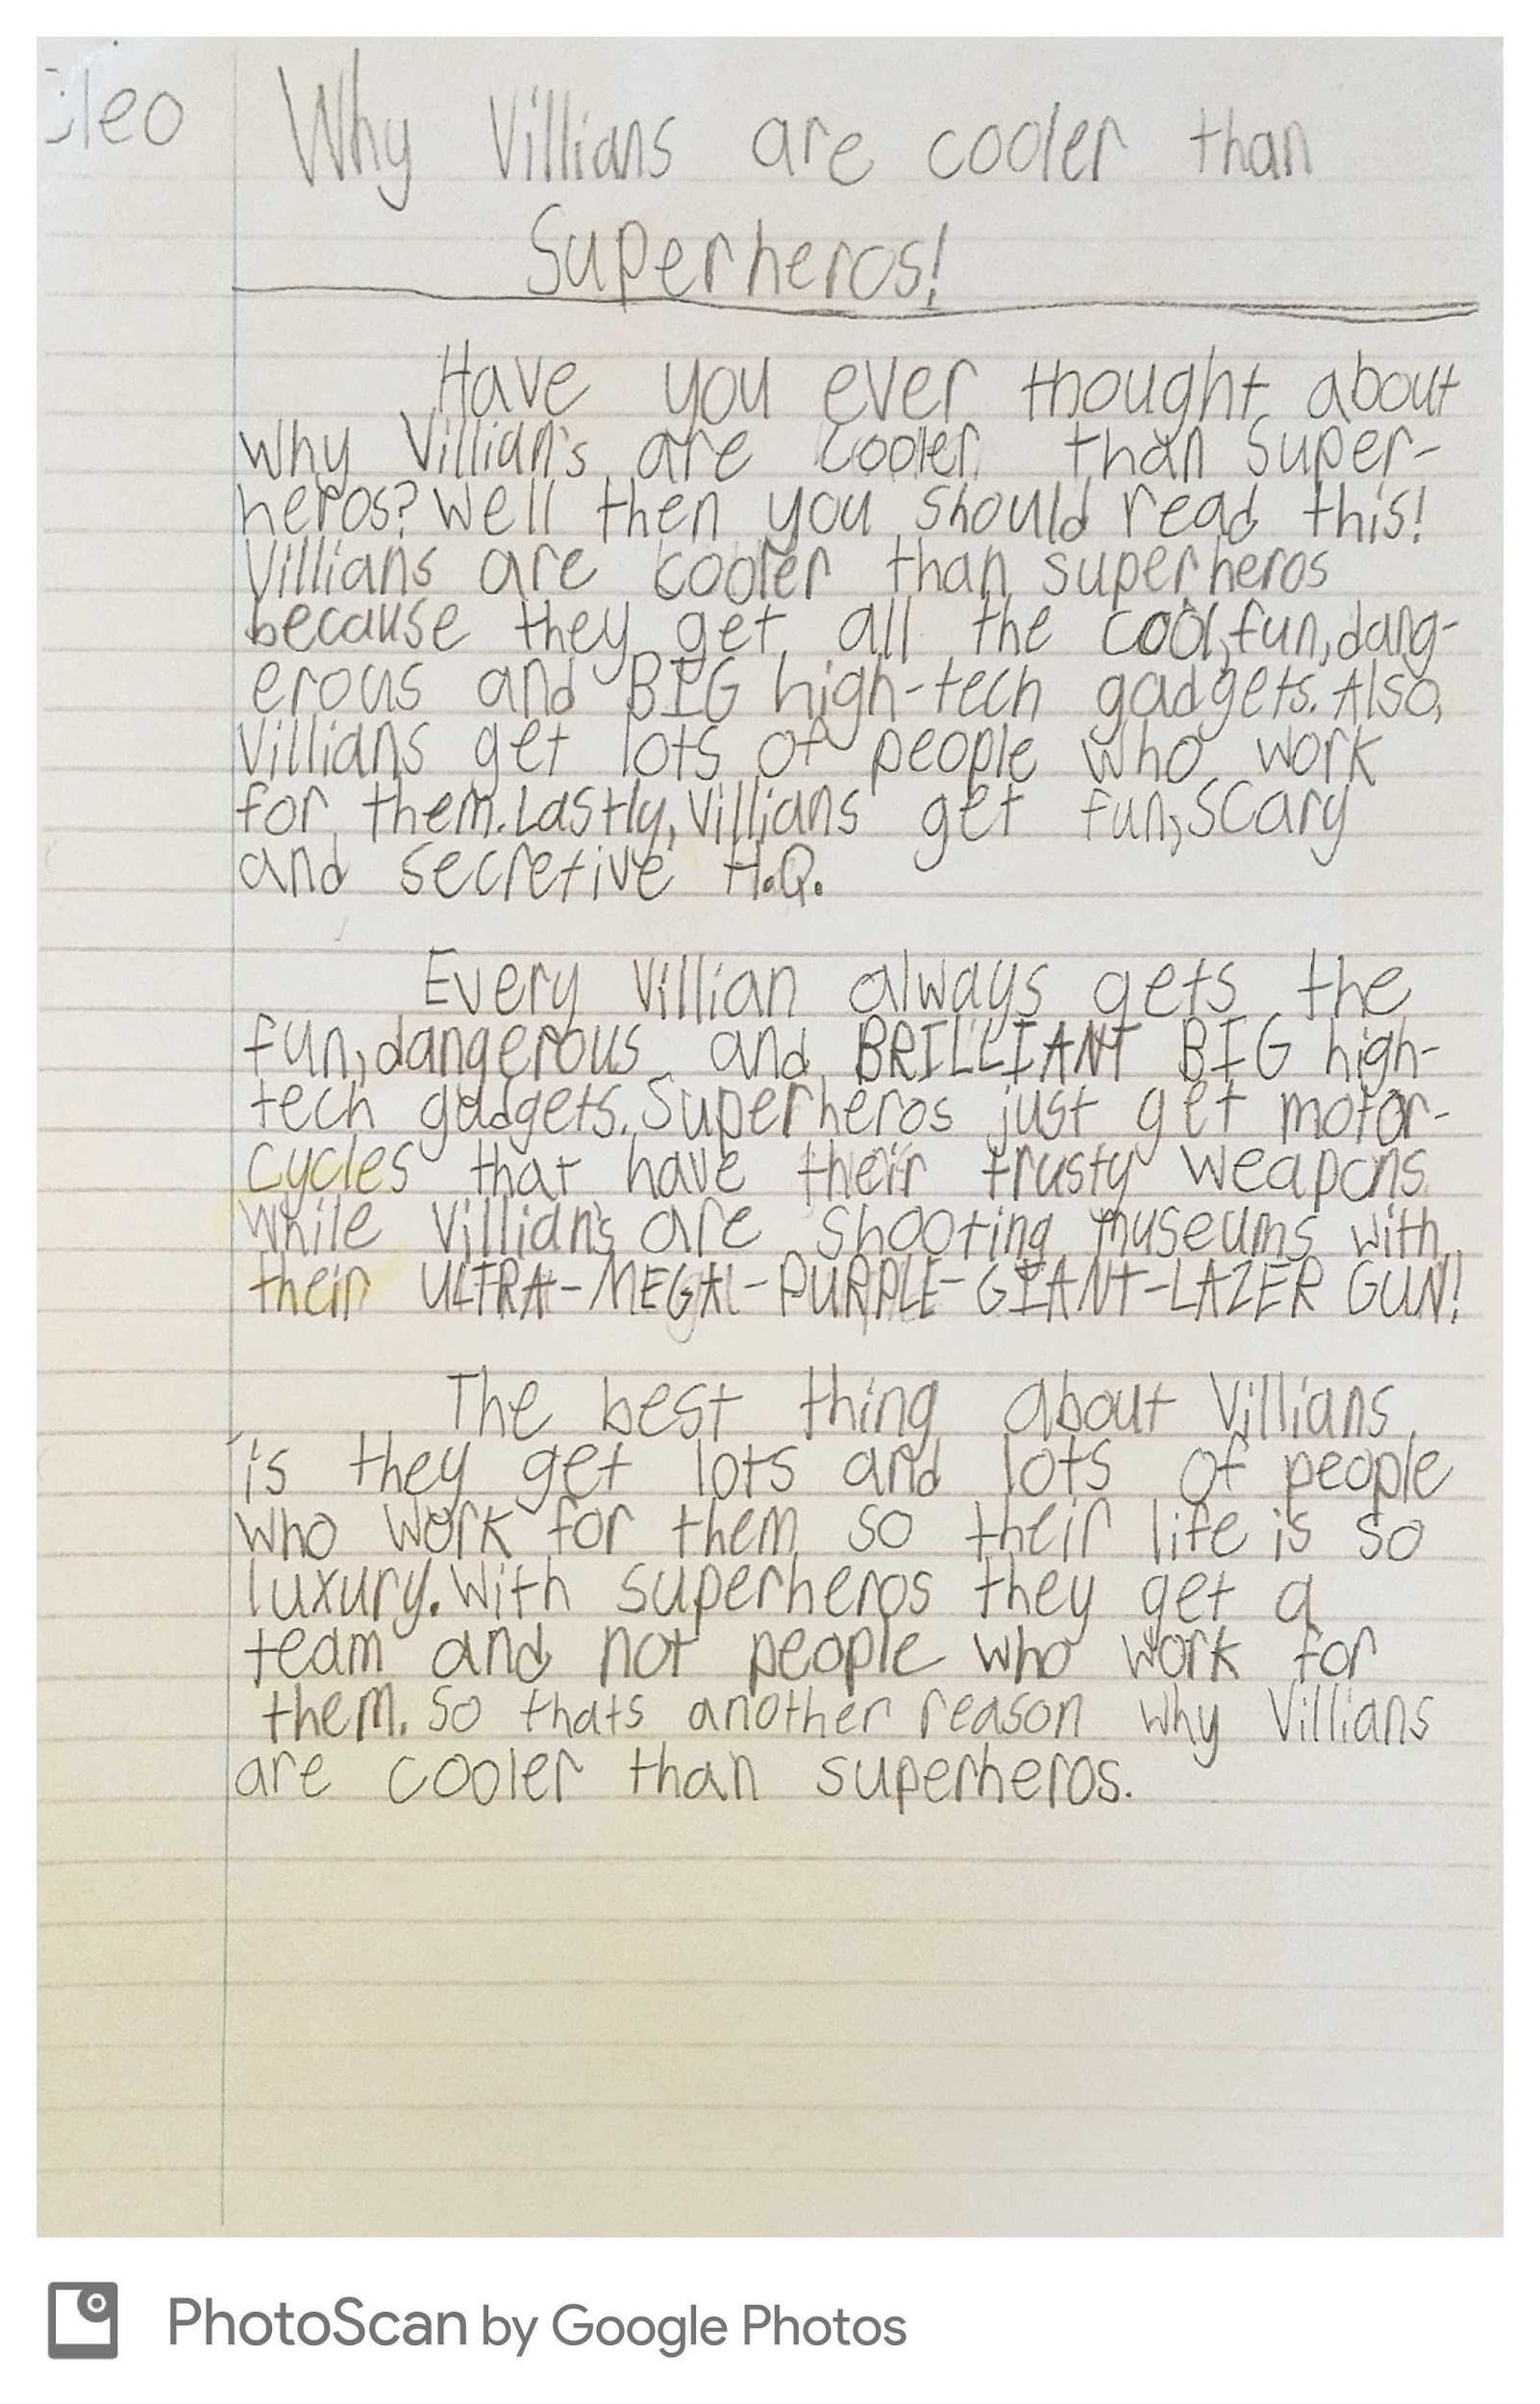 Cleo
Why Villians are cooler than
Superheros!
Have you ever thought about
why Villian's are cooler than Super-
heros? Well then you should read this!
Villians are cooler than superheros
because they get all the cool, fun, dang-
erous and BIG high-tech gadgets. Also,
Villians get lots of people who work
for them. Lastly, Villians get fun, scary
and secretive H.Q.
Every Villian always gets the
fun, dangerous and BRILLIANT BIG high-
tech gadgets. Superheros just get motor-
cycles that have their trusty weapons
while Villian's are shooting museums with
their ULTRA-MEGA-PURPLE-GIANT-LAZER GUN!
The best thing about Villians
is they get lots and lots of people
who work for them so their life is so
luxury. With superheros they get a
team and not people who work for
them. So thats another reason why Villians
are cooler than superheros.
PhotoScan by Google Photos